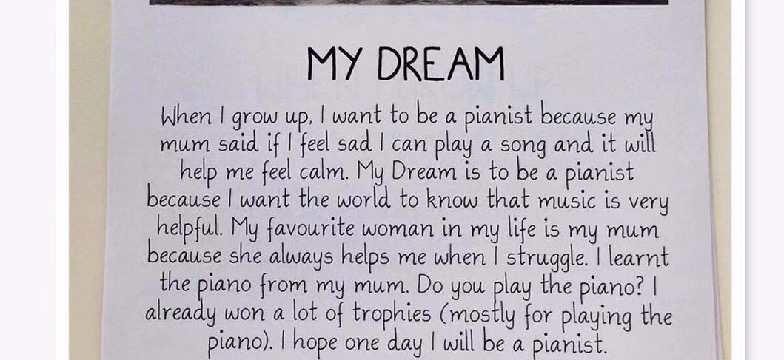 MY DREAM
When I grow up, I want to be a pianist because my
mum said if I feel sad I can play a song and it will
help me feel calm. My Dream is to be a pianist
because I want the world to know that music is very
helpful. My favourite woman in my life is my mum
because she always helps me when I struggle. I learnt
the piano from my mum. Do you play the piano? I
already won a lot of trophies (mostly for playing the
piano). I hope one day I will be a pianist.